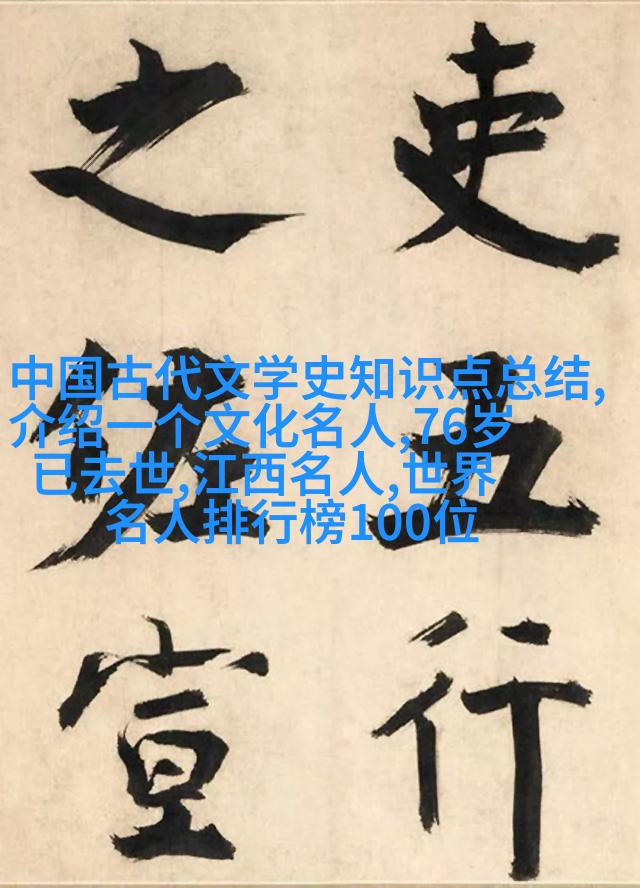 中国古代文学史知识点总结,
介绍一个文化名人,76岁
已去世,江西名人,世界
名人排行榜100位
五行
之宣